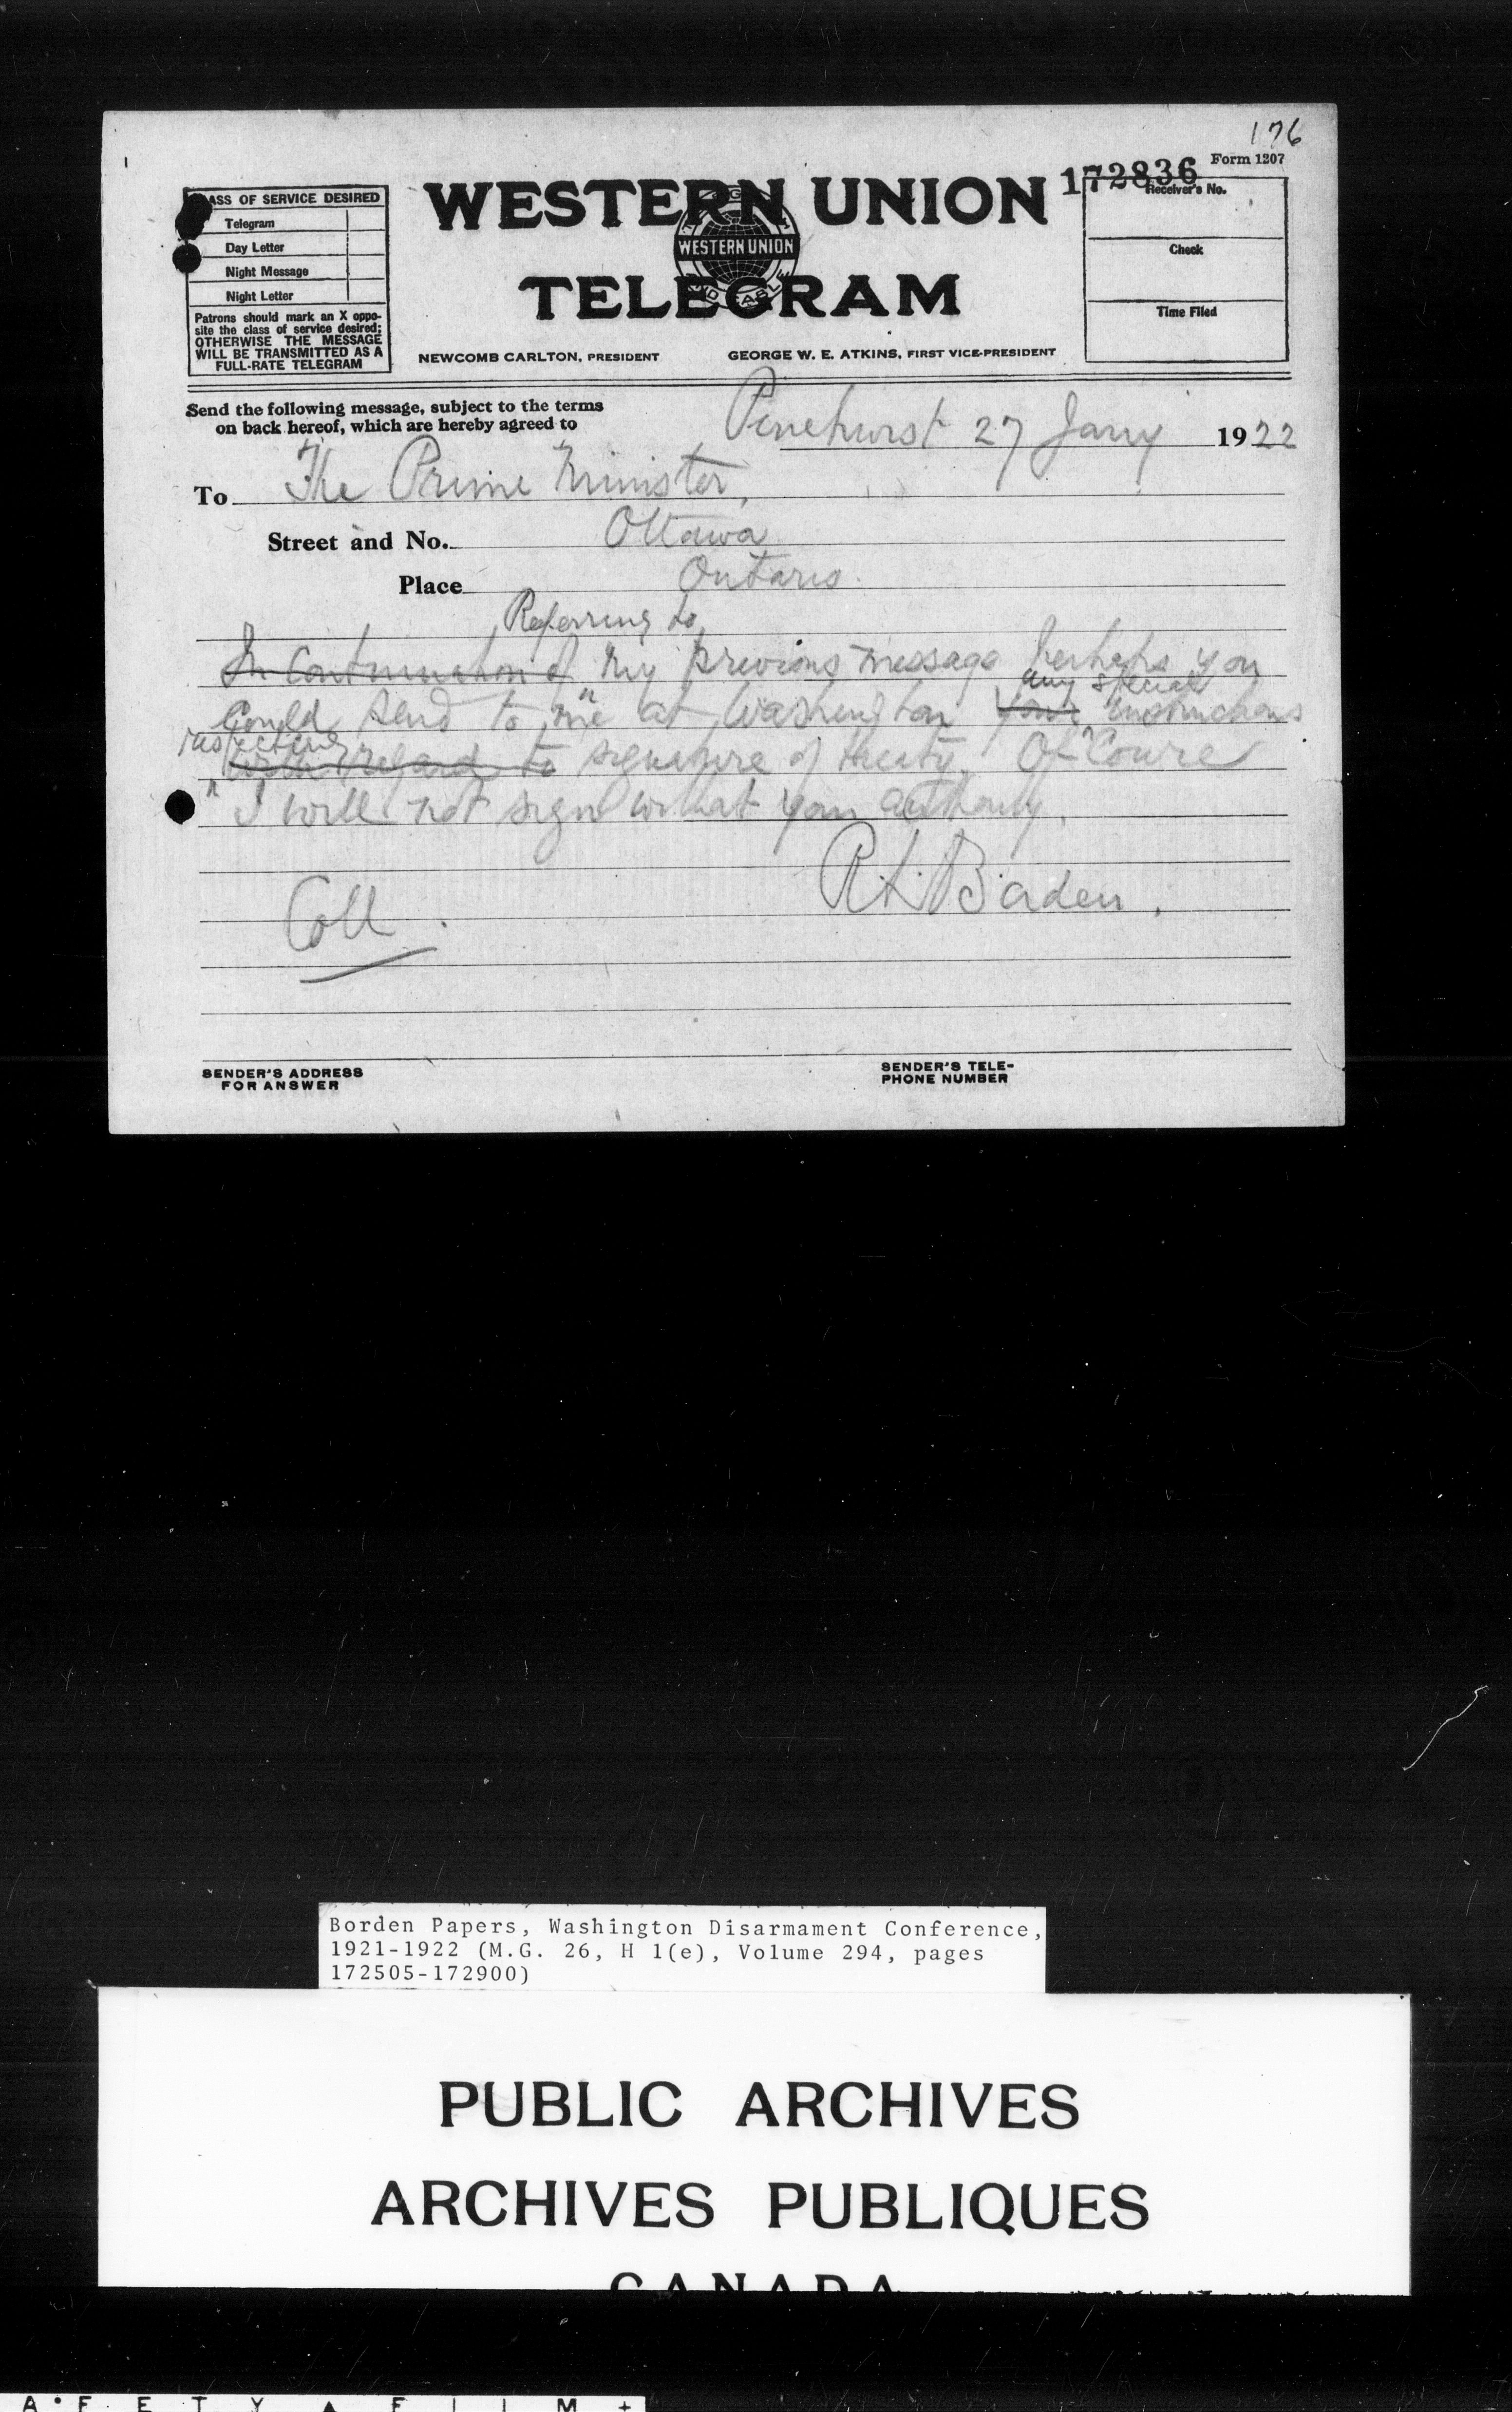 176
Form 1207
172836
CLASS OF SERVICE DESIRED
Telegram
Day Letter
Night Message
Night Letter
Patrons should mark an X oppo-
site the class of service desired;
OTHERWISE THE MESSAGE
WILL BE TRANSMITTED AS A
FULL-RATE TELEGRAM
WESTERN UNION
WESTERN UNION
TELEGRAM
NEWCOMB CARLTON, PRESIDENT
GEORGE W. E. ATKINS, FIRST VICE-PRESIDENT
Receiver's No.
Check
Time Filed
Send the following message, subject to the terms
on back hereof, which are hereby agreed to
Pinehurst 27 Jany 1922
To The Prime Minister,
Street and No. Ottawa
Place Ontario.
Referring to
In Continuation of my previous message perhaps you
any special
could send to me at Washington your instructions
respecting
with regard to signature of treaty. Of Course
I will not sign without your authority.
R.L. Borden.
Coll.
SENDER'S ADDRESS
FOR ANSWER
SENDER'S TELE-
PHONE NUMBER
Borden Papers, Washington Disarmament Conference,
1921-1922 (M.G. 26, H 1(e), Volume 294, pages
172505-172900)
PUBLIC ARCHIVES
ARCHIVES PUBLIQUES
CANADA
AFETY FILM